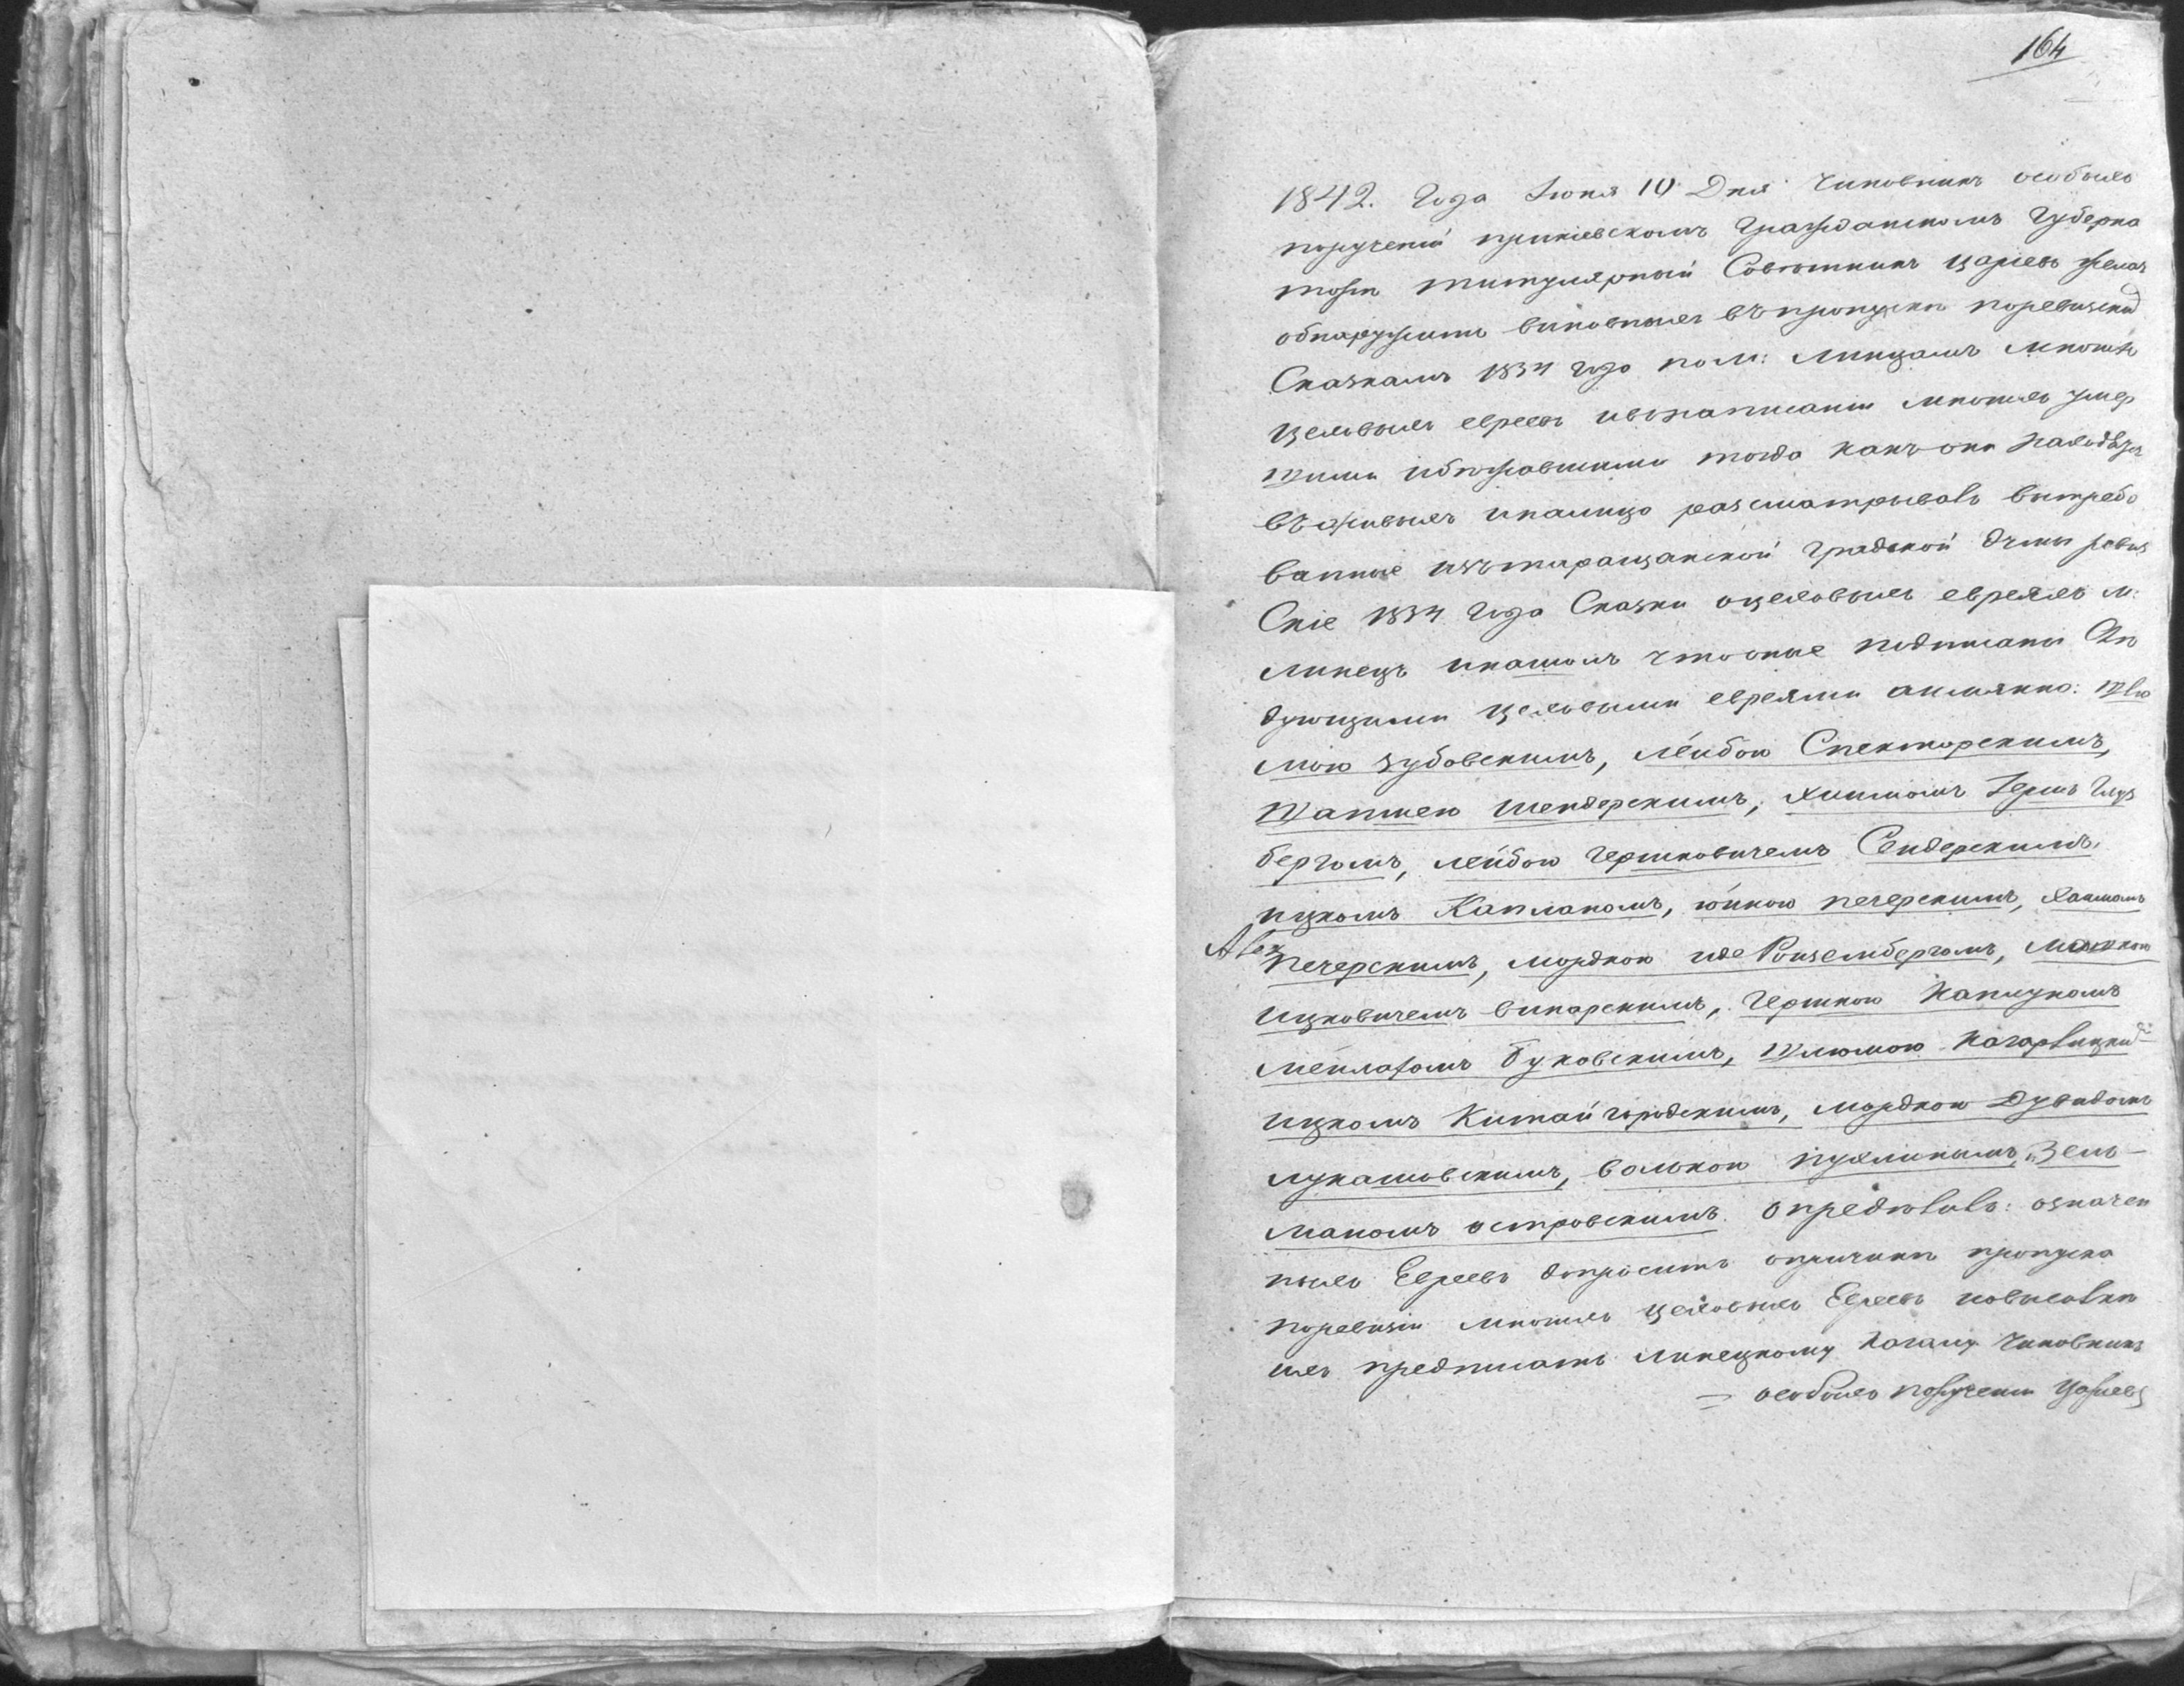 164
1842. Года Июня 10 Дня Чиновникъ особыхъ
порученій прикіевскомъ Гражданскомъ Губерна
торѣ титулярный Совѣтникъ Царевъ желая
обнаружить виновныхъ въпропускѣ поревизскимъ
Сказкамъ 1834 года пом: Линцамъ многихъ
цеховыхъ евреевъ ивнаписаніи многихъ умер
шими ибѣжавшими тогда какъ они находятся
въживыхъ иналицо разсматрывалъ вытребо
ванные изътаращанской Градской думы ревиз
Скіе 1834 Года Сказки оцеховыхъ евреяхъ м:
Линецъ инашолъ чтооные подписаны Слѣ
дующими цеховыми евреями аимянно: Шлю
мою зубовскимъ, лейбою Спекторскимъ,
Шапшею шендерскимъ, Герш
бергомъ, лейбою Гершковичемъ Сендерскимъ,
ицкомъ Капланомъ, іойною печерскимъ, Хаимомъ
печерскимъ, мордкою иде Розембергомъ,
ицковичемъ винарскимъ, Гершкою капцуномъ
буковскимъ, шлюмою кагарлицкимъ
ицкомъ Китайгородскимъ, мордкою Дувидомъ
лукашовскимъ, волькою пухлинымъ, Зель-
маномъ островскимъ опредѣлилъ: означен
ныхъ Евреевъ допросить опричинѣ пропуска
поревизіи многихъ цеховыхъ Евреевъ иовысылкѣ
ихъ предписать линецкому кагалу Чиновникъ
особыхъ порученій Царевъ